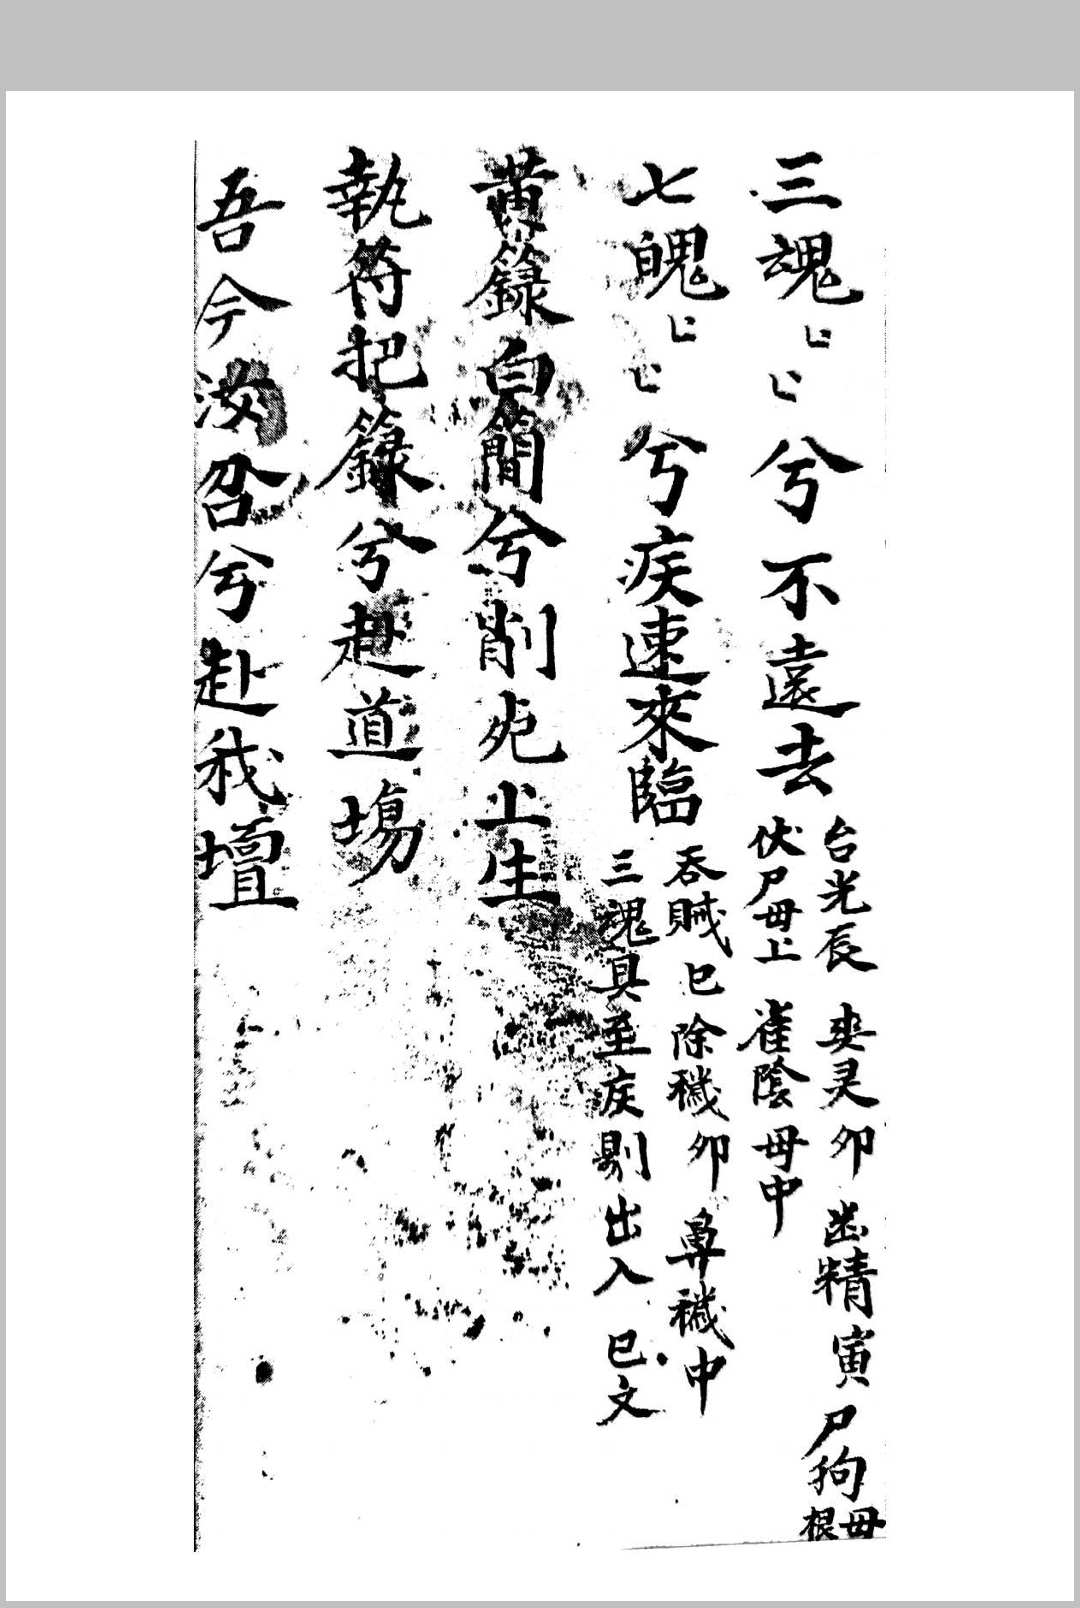 三魂〻〻兮不遠去
台光辰 奭灵卯 幽精寅 尸狗母根
伏尸母上 雀陰母中
七魄〻〻兮疾速來臨
吞賊巳 除穢卯 鼻穢中
三魂具至疾 出入 巳文
黄籙白簡兮削死上生
執符把籙兮赴道場
吾今汝召兮赴我壇